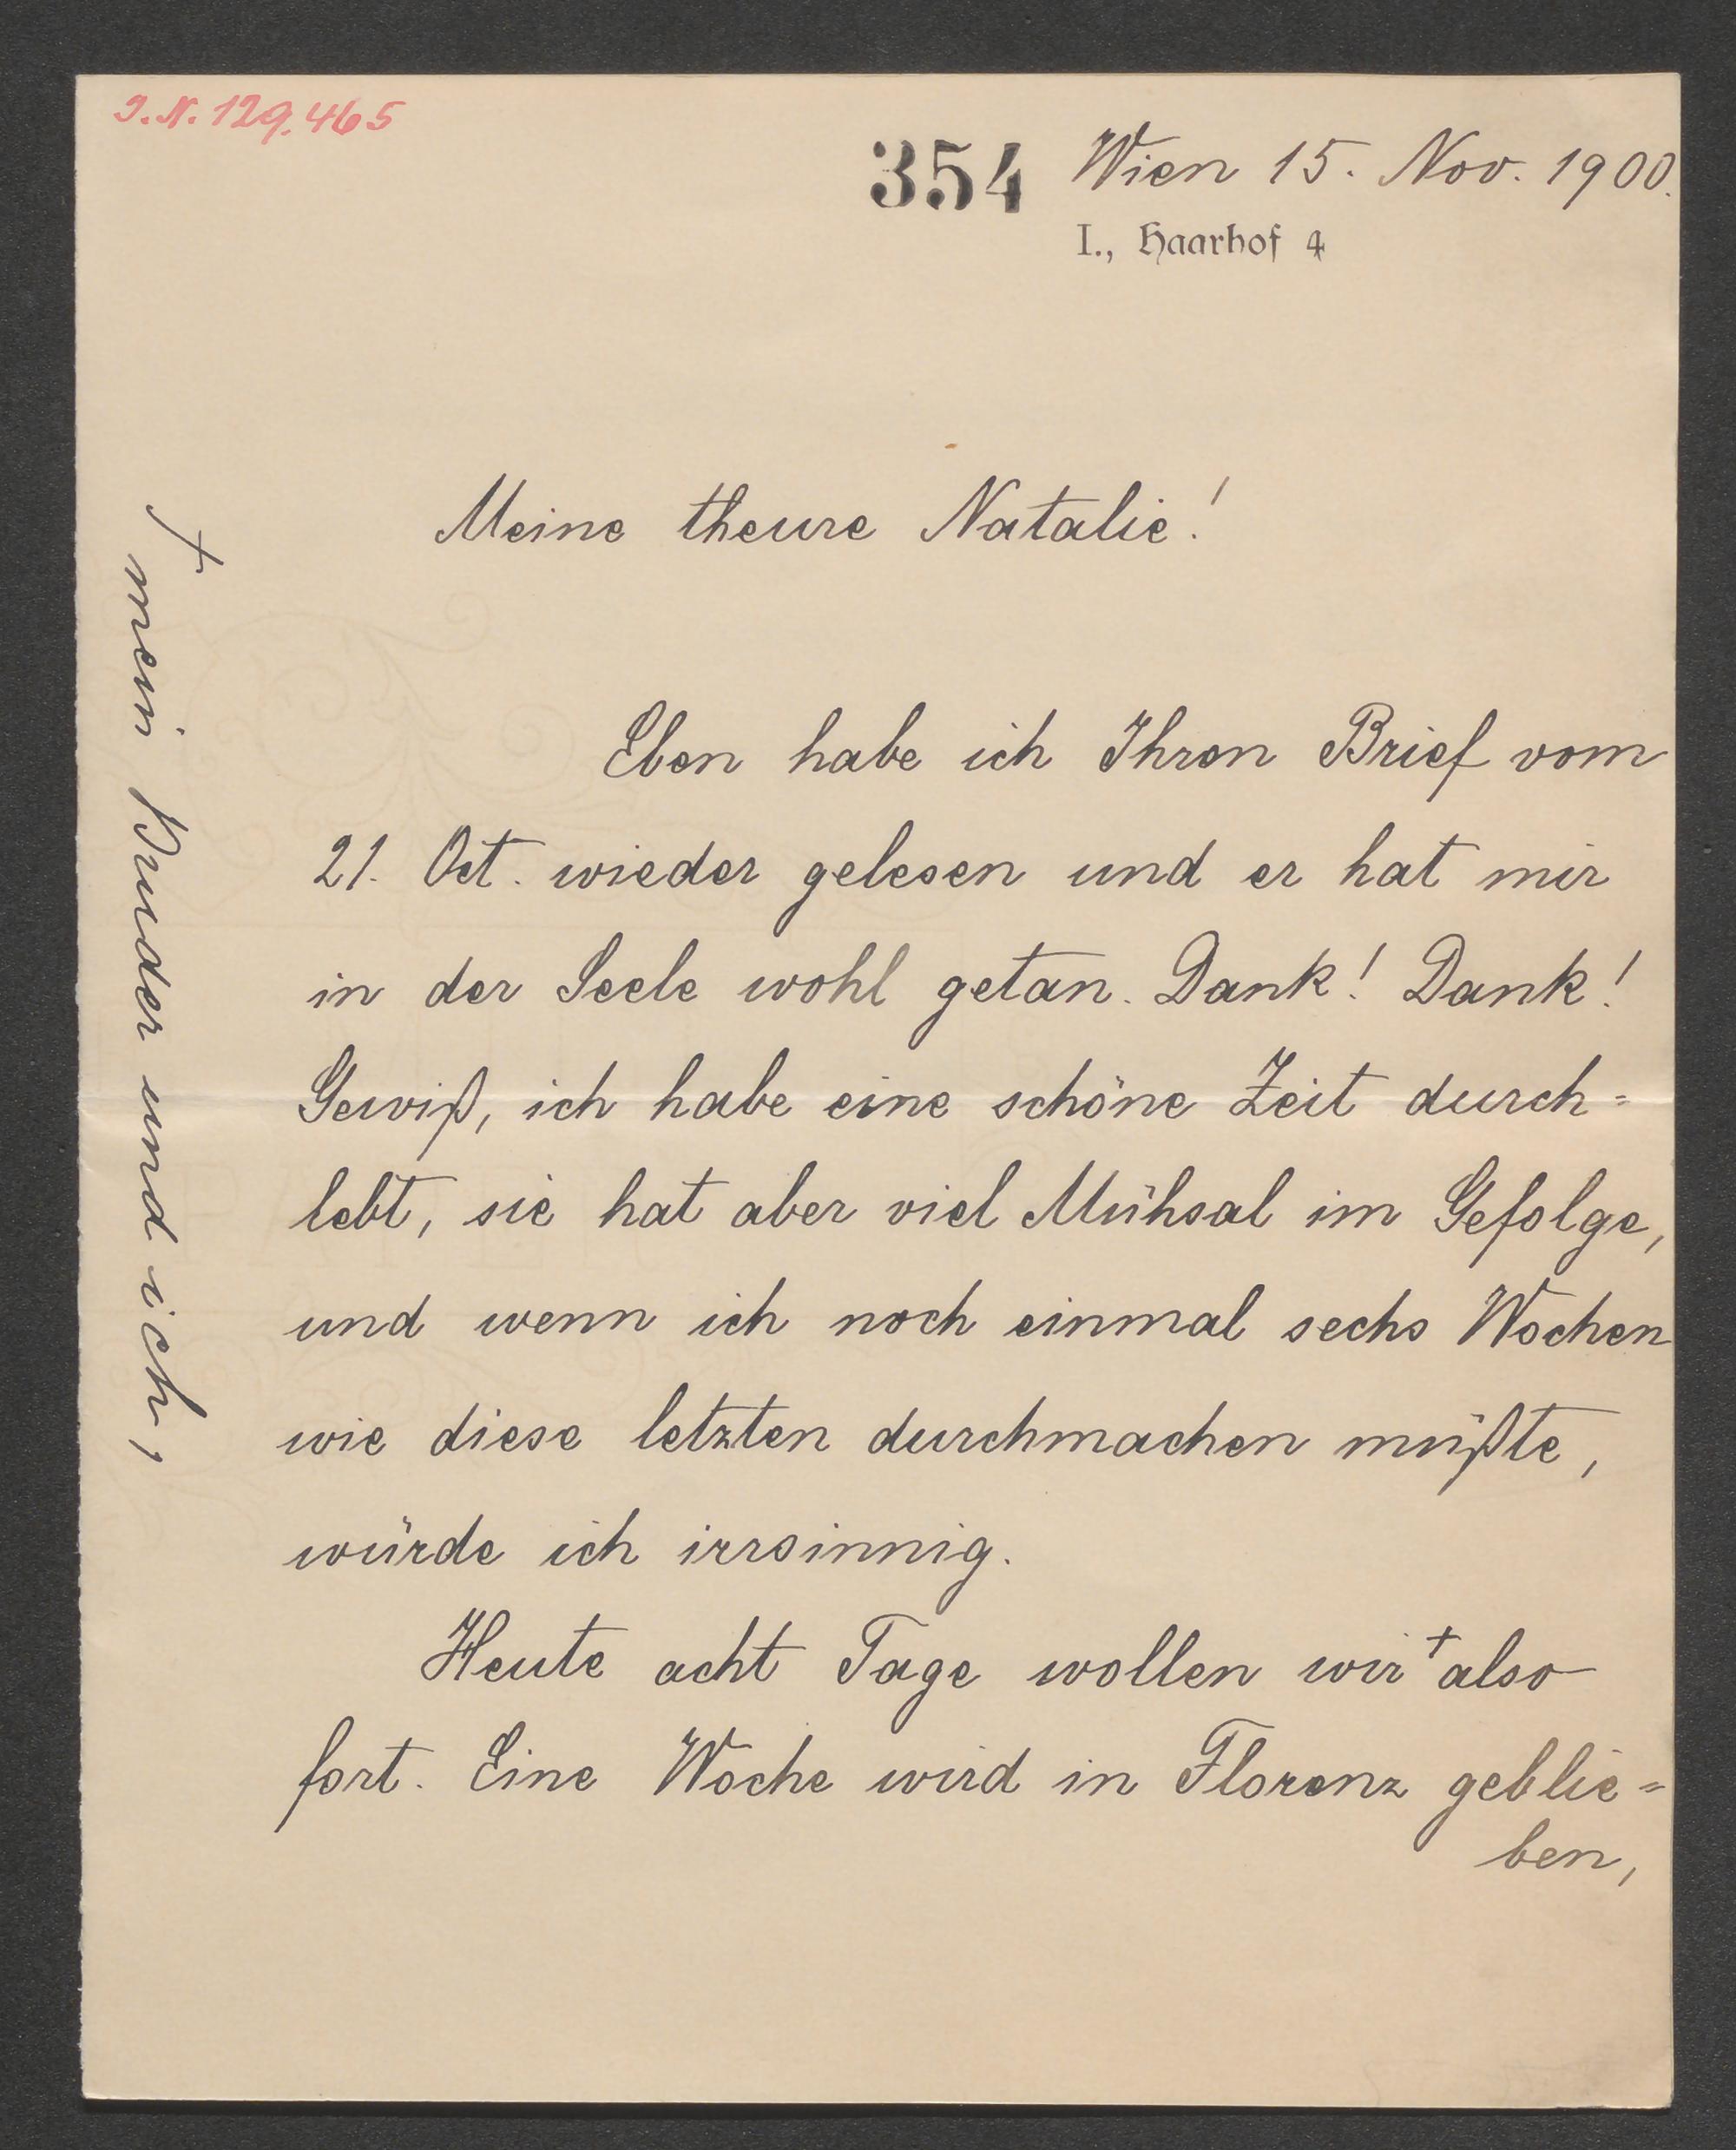 I.N. 129.465
354 Wien 15. Nov. 1900.
I., Haarhof 4
Meine theure Natalie!
Eben habe ich Ihren Brief vom
21. Oct. wieder gelesen und er hat mir
in der Seele wohl getan. Dank! Dank!
Gewiß, ich habe eine schöne Zeit durch-
lebt, sie hat aber viel Mühsal im Gefolge,
und wenn ich noch einmal sechs Wochen
wie diese letzten durchmachen müßte,
würde ich irrsinnig.
Heute acht Tage wollen wir + also
fort. Eine Woche wird in Florenz geblie-
ben,
+ mein Bruder und ich,